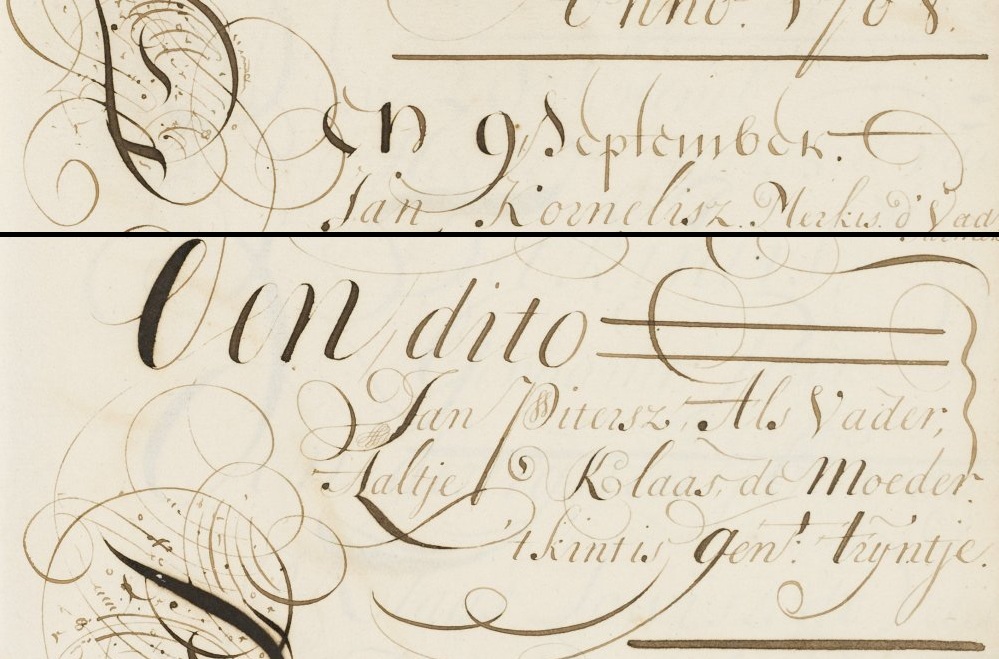 Anno. 1768.
Den 9 September.
Jan Kornelisz. Merkis. d' Vad
Den dito
Jan Pitersz, Als Vader,
Aaltje Klaas, de Moeder.
'tkint is gen<sup>t</sup>: trÿntje.